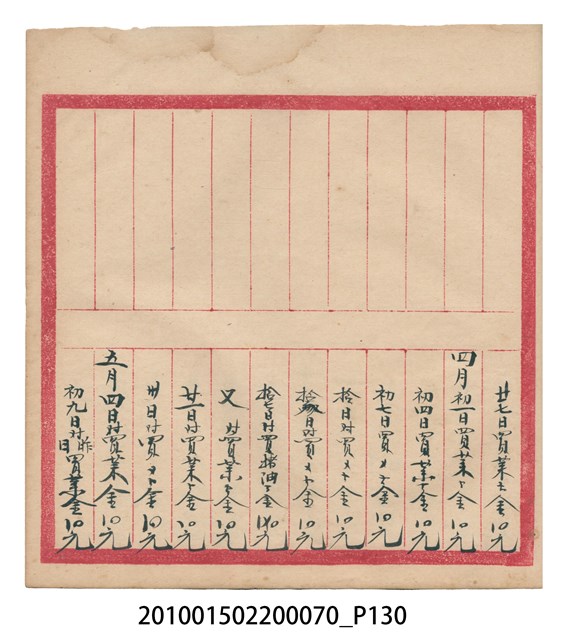 廿七日買菜金10元
四月初一日買菜金10元
初四日買菜金10元
初七日買金10元
拾日対買金10元
拾日対買金10元
拾七日対買猪油金10元
又対買菜金10元
廿一日対買菜金10元
卅日対買金10元
五月四日対買菜金10元
初九日対昨日買菜金10元
201001502200070_P130